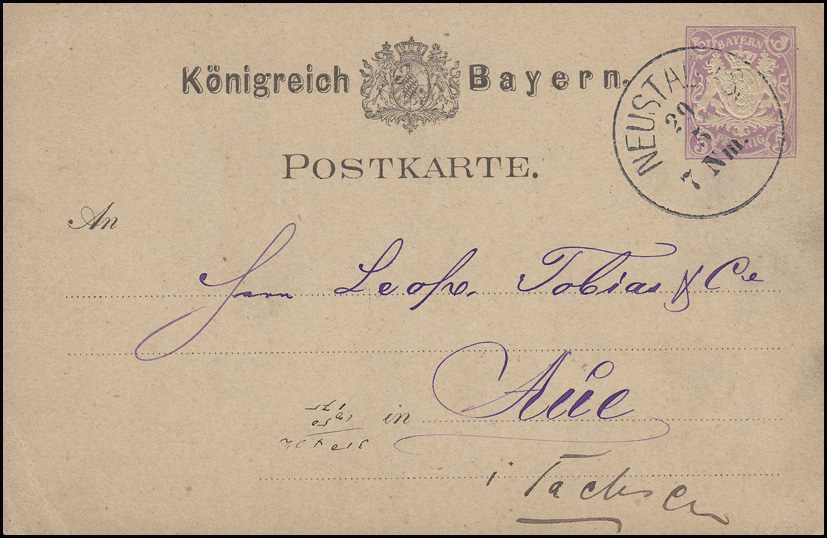 Königreich Bayern.
BAYERN
NEUSTADT
29
5
7 Nm.
POSTKARTE.
An
Herrn Leop. Tobias & Cie
in Aue
i. Sachsen